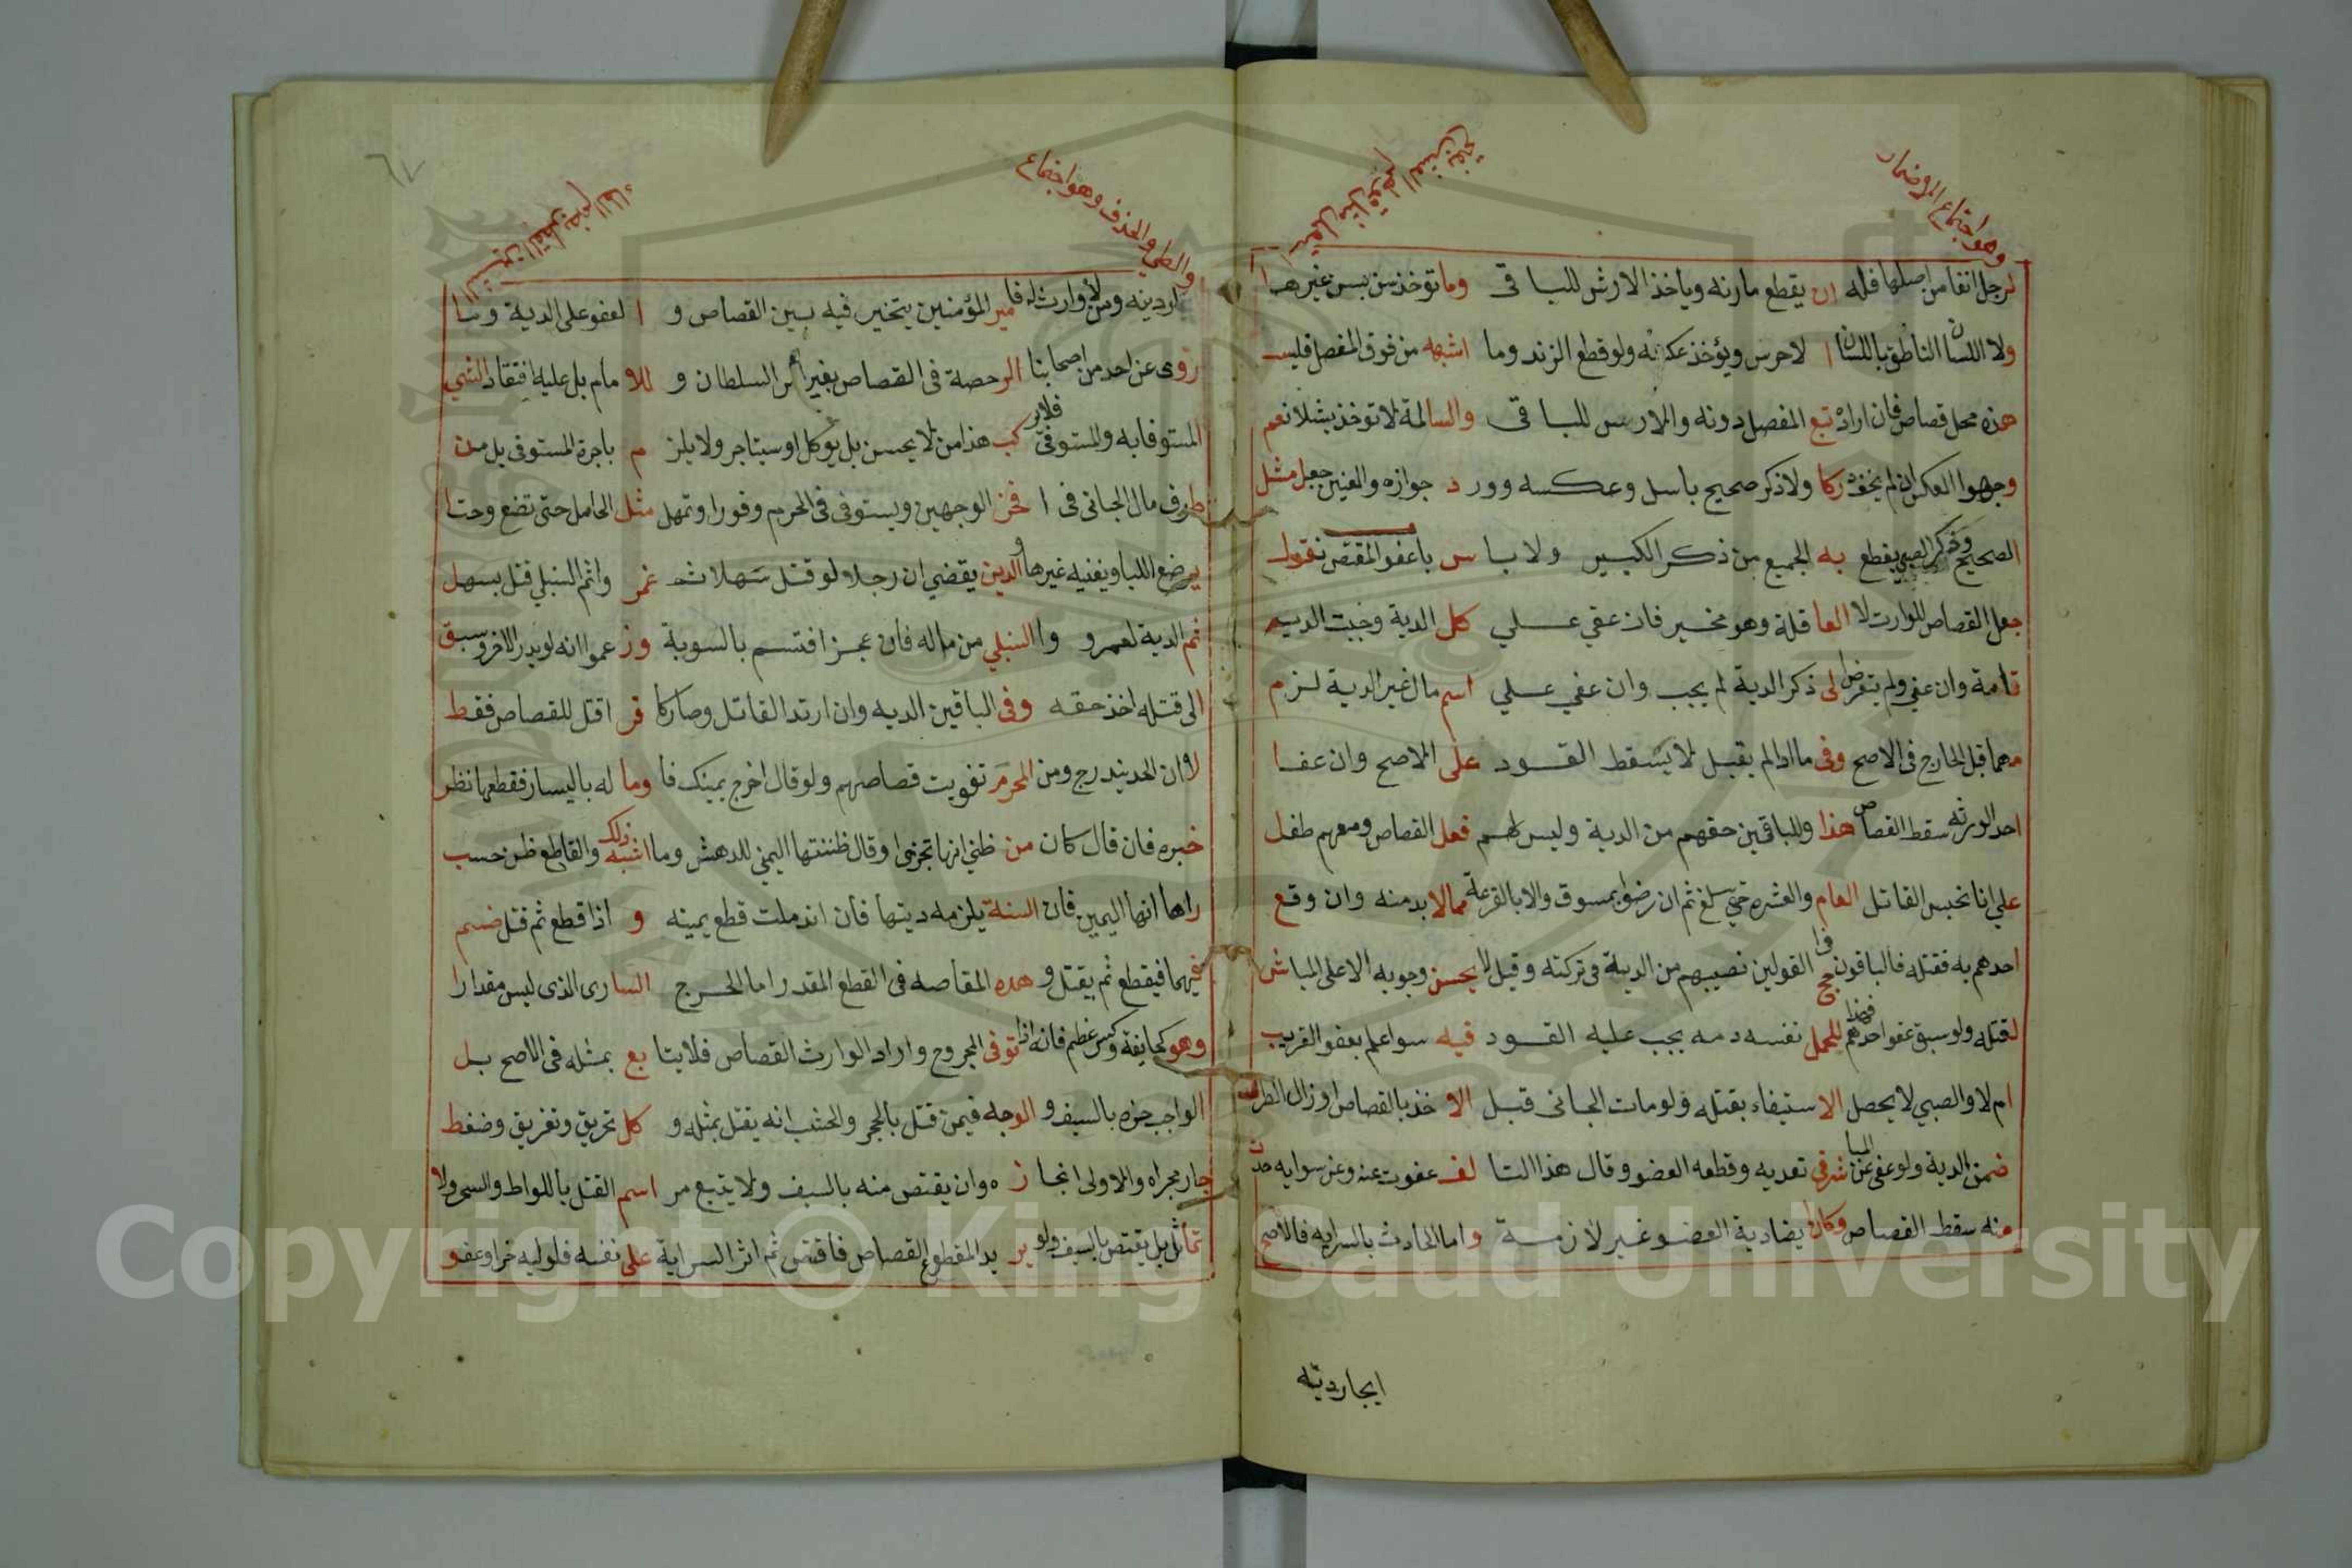 وهو اجتماع الاوضمار
لرجل انفا من اصلها فله ان يقطع مارنه وياخذ الارش للباقى وما توخذ سن بسن غيرها
ولا اللسان الناطق باللسان الاخرس ويؤخذ عكسه ولو قطع الزند وما اشبهه من فوق المفصل فليس
هذه محل قصاص فان اراد تبع المفصل دونه والارس للباقى والسالمة لا توخذ بشلا نعم
وجهوا العكس ان لم يخف دركا ولا ذكر صحيح باسل وعكسه وورد جوازه والعنين جعل مثل
الصحيح وذكر الصبي يقطع به الجميع من ذكر الكبير ولا باس باعفو المقتص نقول
جعل القصاص للوارت لا العاقلة وهو مخير فان عفي علي كل الدية وجبت الديه
تامة وان عفي ولم يتعرض الى ذكر الدية لم يجب وان عفي علي اسم مال غير الدية لزم
مهما قبل الخارج فى الاصح وفى ما اذا لم يقبل لا يسقط القود على الاصح وان عفا
احد الورثه سقط القصاص هذا وللباقين حقهم من الدية وليس لهم فعل القصاص ومعهم طفل
علي انا نحبس القاتل العام والعشره حتي يبلغ ثم ان رضوا بمسوق والا بالقرعة مما لا بد منه وان وقع
احدهم به فقتله فالباقون فى ا جح القولين نصيبهم من الدية فى تركته وقيل لا يحسن وجوبه الا على المباشر
لقتله ولو سبق عفو احدهم فهذا للمحمل نفسه دمه يجب عليه القود فيه سوا علم بعفو القريب
ام لا والصبي لا يحصل الاستيفاء بقتله ولو مات الجانى قبل الاخذ بالقصاص او زال الطرف
ضمن الدية ولو عفى عن المباشر فى تعديه وقطعه العضو وقال هذا التالف عفوت عنه وعن سوايه حدت
منه سقط القصاص وكان ايضا دية العضو غير لازمة واما الحادث بالسرايه فالاصح
ايجارديته
والطي والحذف وهو اجتماع
ايجارديته ومن لا وارث له فامير المؤمنين يتخير فيه بين القصاص والعفو على الدية وما
روى عن احد من اصحابنا الرحصة فى القصاص بغير امر السلطان وللامام بل عليه افتقاد الشي
المستوفا به والمستوفى فلا يركب هذا من لا يحسن بل يوكل او يستاجر ولا يلزم باجرة المستوفى بل من
طرف مال الجانى فى افخر الوجهين ويستوفى فى الحرم وفورا وتمهل مثل الحامل حتى تضع وحتا
يرضع اللبا ويغنيه غيرها والدين يقضي ان رجلا لو قتل سهلا ثم عمر واثم السنبلي قتل بسهل
ثم الدية لعمرو والسنبلي من ماله فان عجز افتسم بالسوية وزعموا انه لو بدر الاخر وسبق
الى قتله اخذ حقه وفى الباقين الديه وان ارتد القاتل وصاركا فر اقتل للقصاص فقط
لاوان الحد يندرج ومن المحرم تفويت قصاصهم ولو قال اخرج يمينك فاوما له باليسار فقطعها نظر
خبره فان قال كان من ظني انها تجزى او قال ظننتها اليمنى للدهش وما اشبه ذلك والقاطع ظن حسب
راها انها اليمين فان السنة يلزمه ديتها فان اندملت قطع يمينه و اذا قطع ثم قتل ضم
فيهما فيقطع ثم يقتل وهده المقاصه فى القطع المقدر اما الجرح السارى الذى ليس مقدارا
وهو كجايفة وكسر عظم فانه اذا توفى المجروح واراد الوارث القصاص فلا يتابع بمثله فى الاصح بل
الواجب حزه بالسيف والوجه فيمن قتل بالحجر والخشب انه يقتل بمثله وكل تحريق وتغريق وضغط
جار مجراه والاولى انجازه وان يقتص منه بالسيف ولا يتبع مراسم القتل باللواط والسحر ولا
تماثل بل يقتص بالسيف ولو بريد المقطوع القصاص فاقتص ثم اثر السراية على نفسه فلوليه خزا وعفو